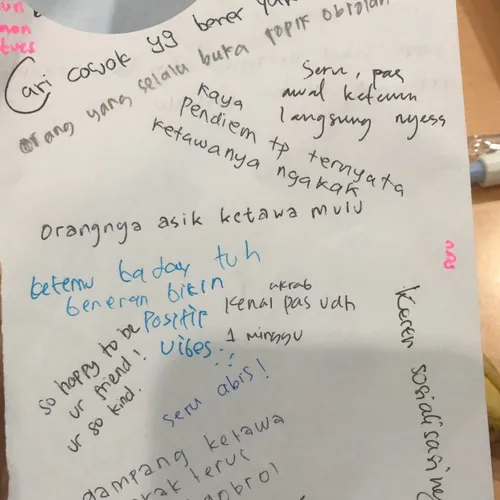 un
non
tues
Cari cowok yg bener ya
orang yang selalu buka topik obrolan
Seru, pas
awal ketemu
langsung nyess
kaya
pendiem tp ternyata
ketawanya ngakak
Orangnya asik ketawa mulu
ketemu taday tuh
beneran bikin
positif
vibes
akrab
kenal pas udh
1 minggu
so happy to be
ur friend!
ur so kind.
seru abis!
Keren sosialisasi
gampang ketawa
terus